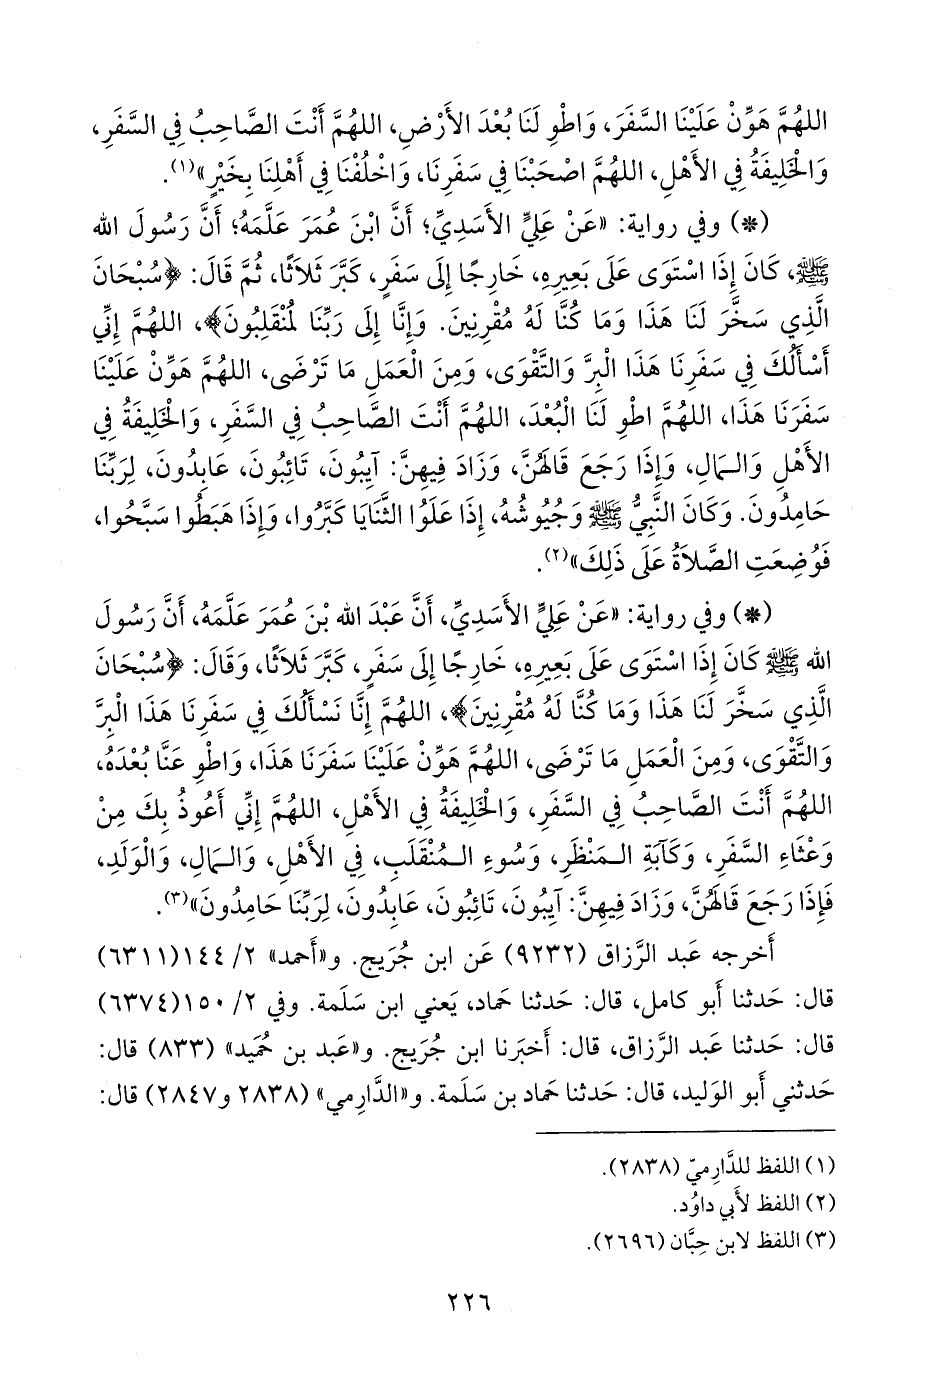 اللهُمَّ هَوِّنْ عَلَيْنَا السَّفَرَ، وَاطْوِ لَنَا بُعْدَ الأَرْضِ، اللهُمَّ أَنْتَ الصَّاحِبُ فِي السَّفَرِ،
وَالْخَلِيفَةُ فِي الأَهْلِ، اللهُمَّ اصْحَبْنَا فِي سَفَرِنَا، وَاخْلُفْنَا فِي أَهْلِنَا بِخَيْرٍ»(١).
(*) وفي رواية: «عَنْ عَلِيٍّ الأَسَدِيِّ؛ أَنَّ ابْنَ عُمَرَ عَلَّمَهُ؛ أَنَّ رَسُولَ الله
ﷺ، كَانَ إِذَا اسْتَوَى عَلَى بَعِيرِهِ، خَارِجًا إِلَى سَفَرٍ، كَبَّرَ ثَلاَثًا، ثُمَّ قَالَ: ﴿سُبْحَانَ
الَّذِي سَخَّرَ لَنَا هَذَا وَمَا كُنَّا لَهُ مُقْرِنِينَ. وَإِنَّا إِلَى رَبِّنَا لَمُنْقَلِبُونَ﴾، اللهُمَّ إِنِّي
أَسْأَلُكَ فِي سَفَرِنَا هَذَا الْبِرَّ وَالتَّقْوَى، وَمِنَ الْعَمَلِ مَا تَرْضَى، اللهُمَّ هَوِّنْ عَلَيْنَا
سَفَرَنَا هَذَا، اللهُمَّ اطْوِ لَنَا الْبُعْدَ، اللهُمَّ أَنْتَ الصَّاحِبُ فِي السَّفَرِ، وَالْخَلِيفَةُ فِي
الأَهْلِ وَالمَالِ، وَإِذَا رَجَعَ قَالَهُنَّ، وَزَادَ فِيهِنَّ: آيِبُونَ، تَائِبُونَ، عَابِدُونَ، لِرَبِّنَا
حَامِدُونَ. وَكَانَ النَّبِيُّ ﷺ وَجُيُوشُهُ، إِذَا عَلَوُا الثَّنَايَا كَبَّرُوا، وَإِذَا هَبَطُوا سَبَّحُوا،
فَوُضِعَتِ الصَّلاَةُ عَلَى ذَلِكَ»(٢).
(*) وفي رواية: «عَنْ عَلِيٍّ الأَسَدِيِّ، أَنَّ عَبْدَ الله بْنَ عُمَرَ عَلَّمَهُ، أَنَّ رَسُولَ
الله ﷺ كَانَ إِذَا اسْتَوَى عَلَى بَعِيرِهِ، خَارِجًا إِلَى سَفَرٍ، كَبَّرَ ثَلاَثًا، وَقَالَ: ﴿سُبْحَانَ
الَّذِي سَخَّرَ لَنَا هَذَا وَمَا كُنَّا لَهُ مُقْرِنِينَ﴾، اللهُمَّ إِنَّا نَسْأَلُكَ فِي سَفَرِنَا هَذَا الْبِرَّ
وَالتَّقْوَى، وَمِنَ الْعَمَلِ مَا تَرْضَى، اللهُمَّ هَوِّنْ عَلَيْنَا سَفَرَنَا هَذَا، وَاطْوِ عَنَّا بُعْدَهُ،
اللهُمَّ أَنْتَ الصَّاحِبُ فِي السَّفَرِ، وَالْخَلِيفَةُ فِي الأَهْلِ، اللهُمَّ إِنِّي أَعُوذُ بِكَ مِنْ
وَعْثَاءِ السَّفَرِ، وَكَآبَةِ المَنْظَرِ، وَسُوءِ المُنْقَلَبِ، فِي الأَهْلِ، وَالمَالِ، وَالْوَلَدِ،
فَإِذَا رَجَعَ قَالَهُنَّ، وَزَادَ فِيهِنَّ: آيِبُونَ، تَائِبُونَ، عَابِدُونَ، لِرَبِّنَا حَامِدُونَ»(٣).
أَخرجه عَبد الرَّزاق (٩٢٣٢) عَن ابن جُرَيج. و«أَحمد» ٢/ ١٤٤(٦٣١١)
قال: حَدثنا أَبو كامل، قال: حَدثنا حَماد، يَعني ابن سَلَمة. وفي ٢/ ١٥٠(٦٣٧٤)
قال: حَدثنا عَبد الرَّزاق، قال: أَخبَرنا ابن جُرَيج. و«عَبد بن حُمَيد» (٨٣٣) قال:
حَدثني أَبو الوَليد، قال: حَدثنا حَماد بن سَلَمة. و«الدَّارِمي» (٢٨٣٨ و٢٨٤٧) قال:
(١) اللفظ للدَّارِميّ (٢٨٣٨).
(٢) اللفظ لأَبي داوُد.
(٣) اللفظ لابن حِبَّان (٢٦٩٦).
٢٢٦